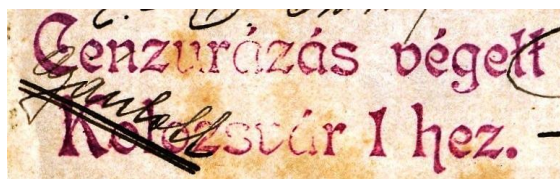 Cenzurázás végett
Kolozsvár 1 hez.